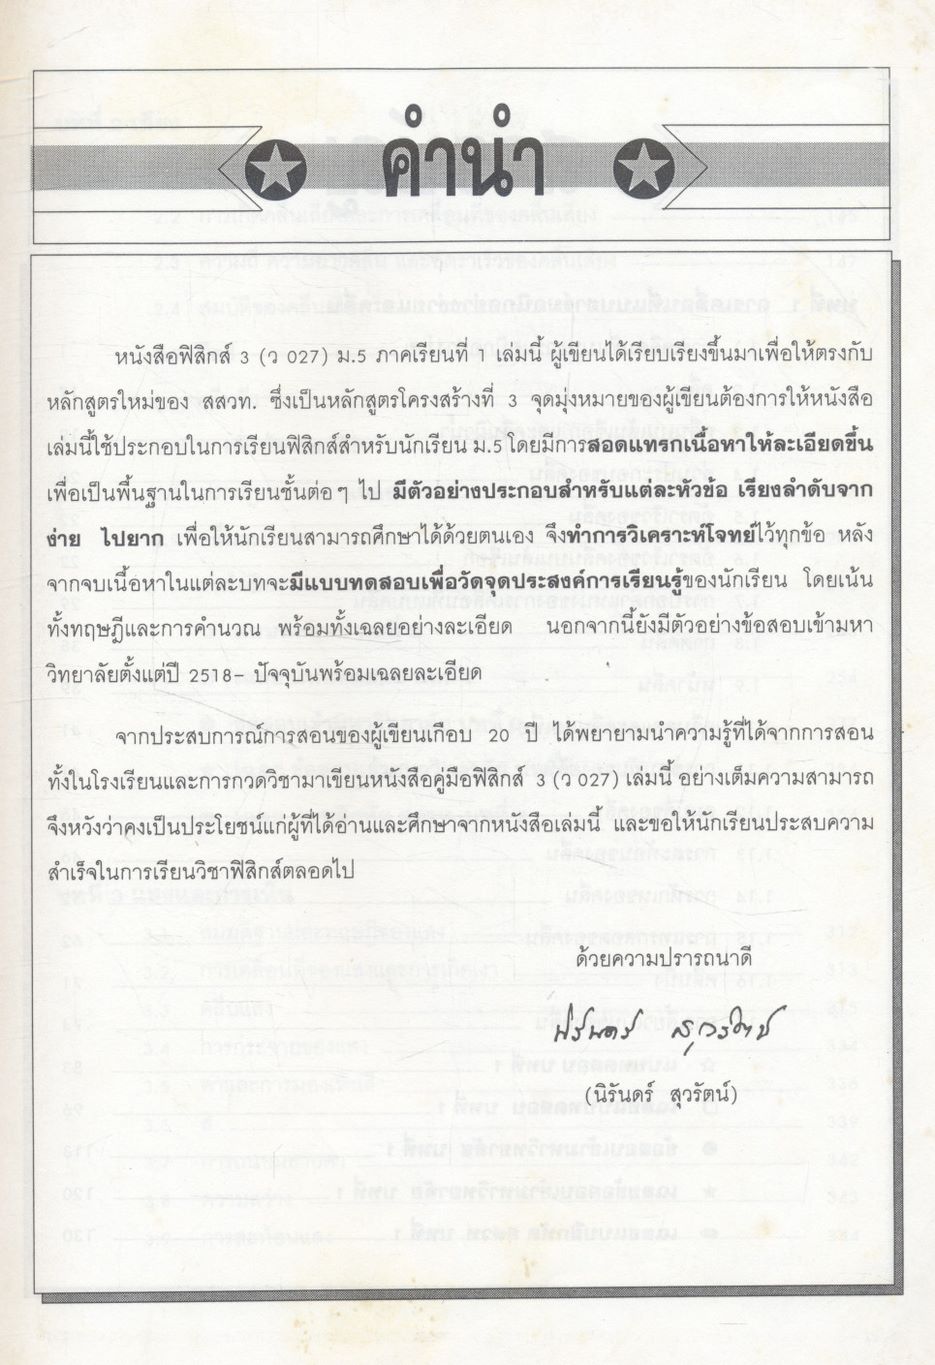 คำนำ
หนังสือฟิสิกส์ 3 (ว 027) ม.5 ภาคเรียนที่ 1 เล่มนี้ ผู้เขียนได้เรียบเรียงขึ้นมาเพื่อให้ตรงกับ
หลักสูตรใหม่ของ สสวท. ซึ่งเป็นหลักสูตรโครงสร้างที่ 3 จุดมุ่งหมายของผู้เขียนต้องการให้หนังสือ
เล่มนี้ใช้ประกอบในการเรียนฟิสิกส์สำหรับนักเรียน ม.5 โดยมีการสอดแทรกเนื้อหาให้ละเอียดขึ้น
เพื่อเป็นพื้นฐานในการเรียนชั้นต่อๆ ไป มีตัวอย่างประกอบสำหรับแต่ละหัวข้อ เรียงลำดับจาก
ง่าย ไปยาก เพื่อให้นักเรียนสามารถศึกษาได้ด้วยตนเอง จึงทำการวิเคราะห์โจทย์ไว้ทุกข้อ หลัง
จากจบเนื้อหาในแต่ละบทจะมีแบบทดสอบเพื่อวัดจุดประสงค์การเรียนรู้ของนักเรียน โดยเน้น
ทั้งทฤษฎีและการคำนวณ พร้อมทั้งเฉลยอย่างละเอียด นอกจากนี้ยังมีตัวอย่างข้อสอบเข้ามหา
วิทยาลัยตั้งแต่ปี 2518– ปัจจุบันพร้อมเฉลยละเอียด
จากประสบการณ์การสอนของผู้เขียนเกือบ 20 ปี ได้พยายามนำความรู้ที่ได้จากการสอน
ทั้งในโรงเรียนและการกวดวิชามาเขียนหนังสือคู่มือฟิสิกส์ 3 (ว 027) เล่มนี้ อย่างเต็มความสามารถ
จึงหวังว่าคงเป็นประโยชน์แก่ผู้ที่ได้อ่านและศึกษาจากหนังสือเล่มนี้ และขอให้นักเรียนประสบความ
สำเร็จในการเรียนวิชาฟิสิกส์ตลอดไป
ด้วยความปรารถนาดี
นิรันดร์ สุวรัตน์
(นิรันดร์ สุวรัตน์)